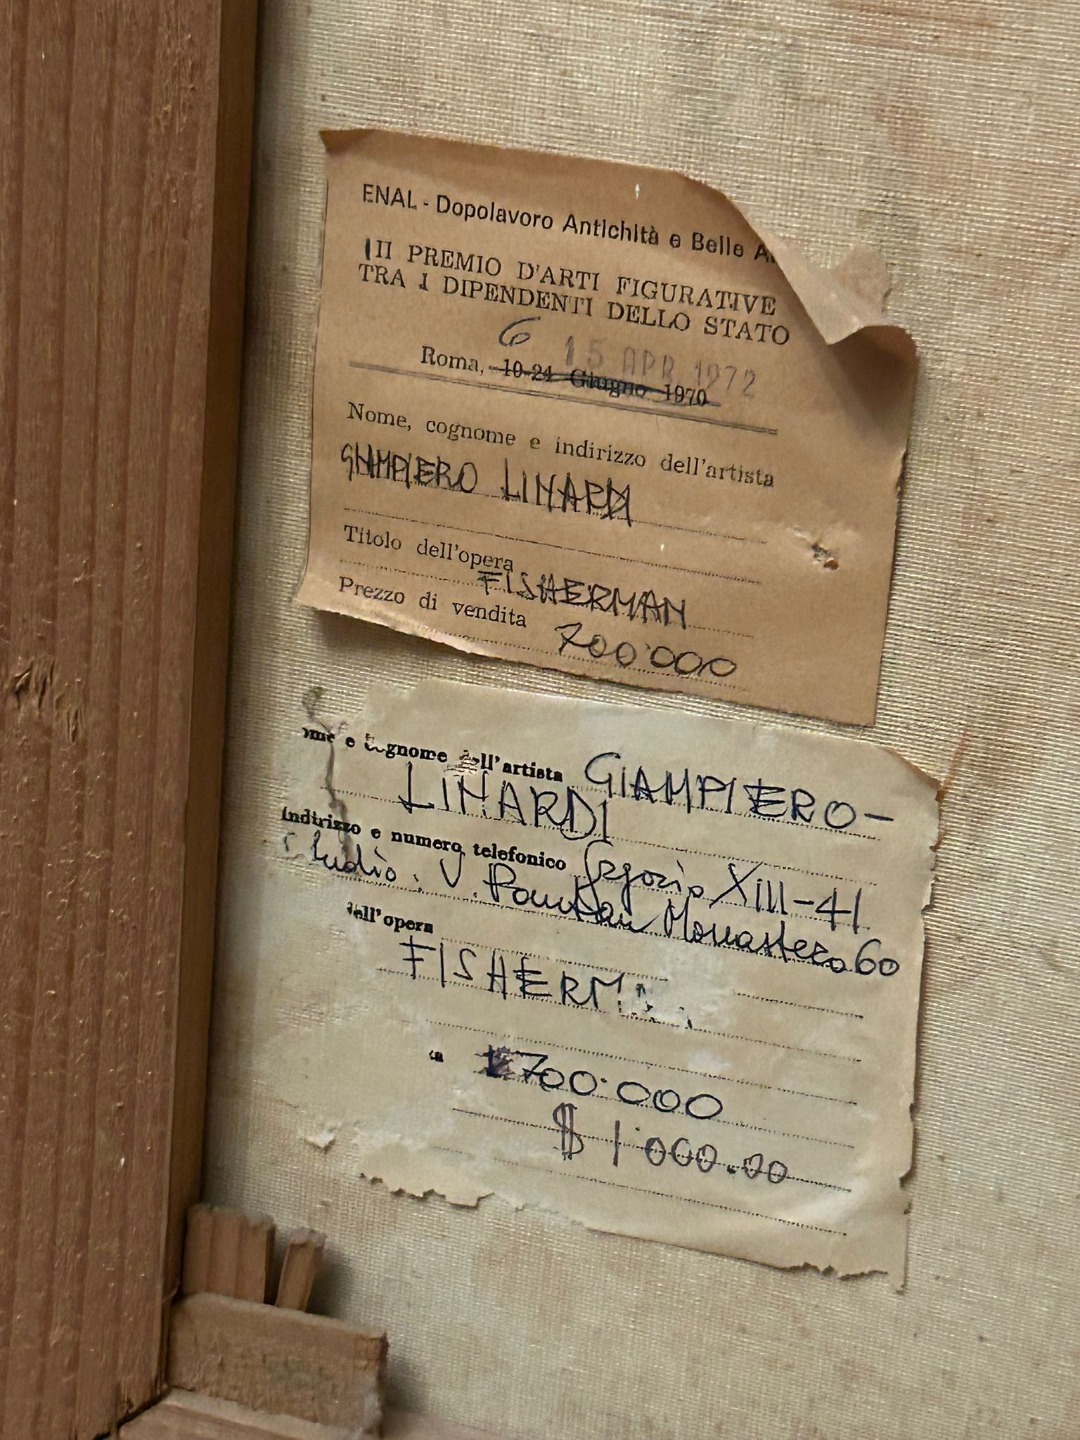 ENAL - Dopolavoro Antichità e Belle A
III PREMIO D'ARTI FIGURATIVE
TRA I DIPENDENTI DELLO STATO
6 15 APR 1972
Roma, 10-24 Giugno 1970
Nome, cognome e indirizzo dell'artista
GIAMPIERO LINARDI
Titolo dell'opera
FISHERMAN
Prezzo di vendita
700'000
ome e cognome dell'artista GIAMPIERO-
LINARDI
indirizzo e numero telefonico Gregorio XIII-41
studio: V. Monastero 60
dell'opera
FISHERMAN
ta 700.000
$ 1'000.00